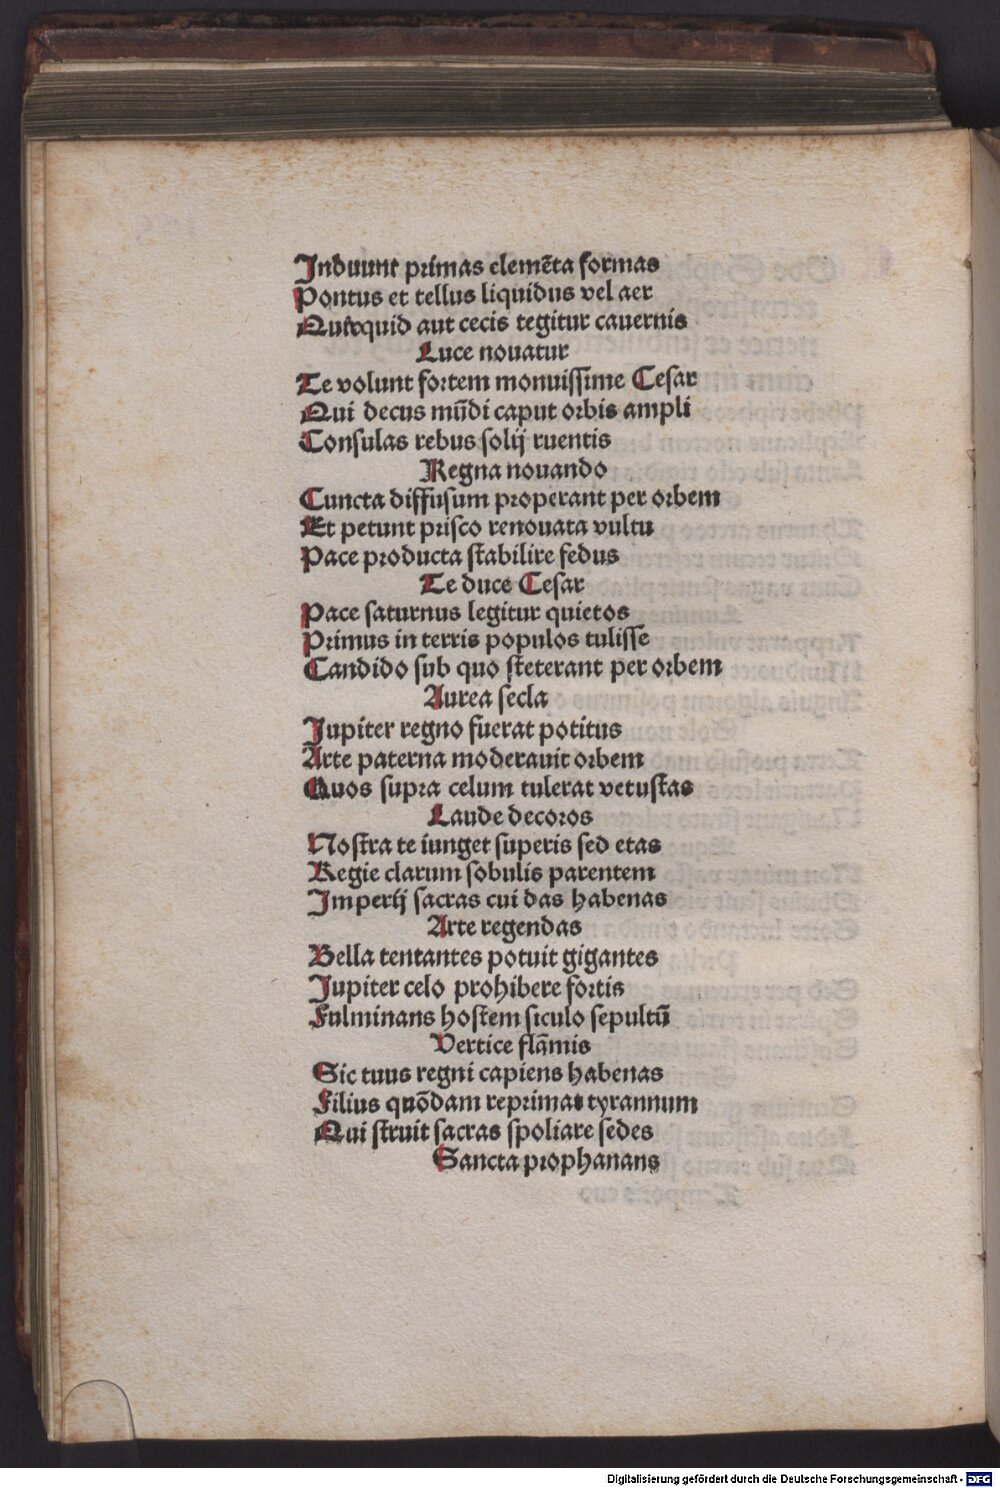 Induunt primas elemēta formas
Pontus et tellus liquidus vel aer
Quicquid aut cecis tegitur cauernis
Luce nouatur
Te volunt fortem monuissime Cesar
Qui decus mūdi caput orbis ampli
Consulas rebus solij ruentis
Regna nouando
Cuncta diffusum properant per orbem
Et petunt prisco renouata vultu
Pace producta stabilire fedus
Te duce Cesar
Pace saturnus legitur quietos
Primus in terris populos tulisse
Candido sub quo steterant per orbem
Aurea secla
Jupiter regno fuerat potitus
Arte paterna moderauit orbem
Quos supra celum tulerat vetustas
Laude decoros
Nostra te iunget superis sed etas
Regie clarum sobulis parentem
Imperij sacras cui das habenas
Arte regendas
Bella tentantes potuit gigantes
Jupiter celo prohibere fortis
Fulminans hostem siculo sepultū
Vertice flāmis
Sic tuus regni capiens habenas
Filius quōdam reprimat tyrannum
Qui struit sacras spoliare sedes
Sancta prophanans
Digitalisierung gefördert durch die Deutsche Forschungsgemeinschaft - DFG